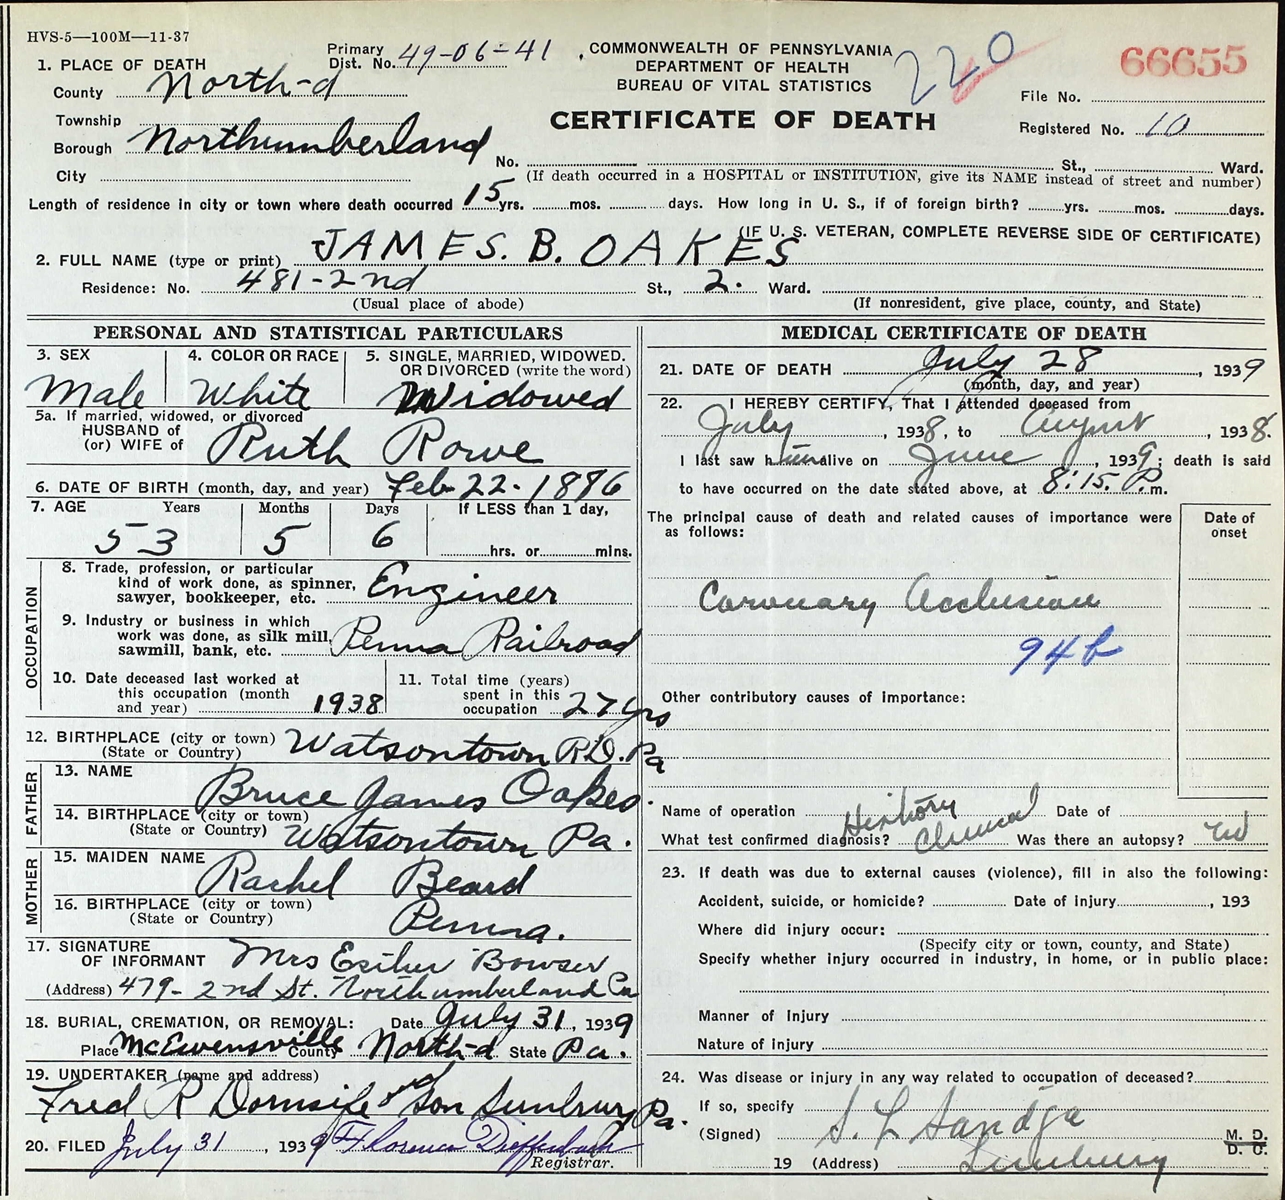 HVS-5—100M—11-37
Primary Dist. No. 49-06-41
COMMONWEALTH OF PENNSYLVANIA
DEPARTMENT OF HEALTH
BUREAU OF VITAL STATISTICS
CERTIFICATE OF DEATH
220
66655
File No.
Registered No. 10
1. PLACE OF DEATH
County North-d
Township
Borough Northumberland
City
No. St., Ward.
(If death occurred in a HOSPITAL or INSTITUTION, give its NAME instead of street and number)
Length of residence in city or town where death occurred 15 yrs. mos. days. How long in U. S., if of foreign birth? yrs. mos. days.
(IF U. S. VETERAN, COMPLETE REVERSE SIDE OF CERTIFICATE)
2. FULL NAME (type or print) JAMES. B. OAKES
Residence: No. 481-2nd St., 2. Ward.
(Usual place of abode) (If nonresident, give place, county, and State)
PERSONAL AND STATISTICAL PARTICULARS
3. SEX Male
4. COLOR OR RACE White
5. SINGLE, MARRIED, WIDOWED. OR DIVORCED (write the word) Widowed
5a. If married, widowed, or divorced
HUSBAND of
(or) WIFE of Ruth Rowe
6. DATE OF BIRTH (month, day, and year) Feb-22-1886
7. AGE Years 53 Months 5 Days 6 If LESS than 1 day, hrs. or mins.
OCCUPATION
8. Trade, profession, or particular kind of work done, as spinner, sawyer, bookkeeper, etc. Engineer
9. Industry or business in which work was done, as silk mill, sawmill, bank, etc. Penna Railroad
10. Date deceased last worked at this occupation (month and year) 1938
11. Total time (years) spent in this occupation 27 yrs
12. BIRTHPLACE (city or town) (State or Country) Watsontown R.D. Pa
FATHER
13. NAME Bruce James Oakes.
14. BIRTHPLACE (city or town) (State or Country) Watsontown Pa.
MOTHER
15. MAIDEN NAME Rachel Beard
16. BIRTHPLACE (city or town) (State or Country) Penna.
17. SIGNATURE OF INFORMANT Mrs Esther Bowser
(Address) 479- 2nd St. Northumberland Pa
18. BURIAL, CREMATION, OR REMOVAL: Date July 31, 1939
Place McEwensville County North-d State Pa.
19. UNDERTAKER (name and address)
Fred R Dornsife and Son Sunbury Pa.
20. FILED July 31, 1939 Florence Dieffenbach
Registrar.
MEDICAL CERTIFICATE OF DEATH
21. DATE OF DEATH July 28, 1939
(month, day, and year)
22. I HEREBY CERTIFY, That I attended deceased from
July, 1938, to August, 1938.
I last saw him alive on June, 1939; death is said
to have occurred on the date stated above, at 8:15 P.m.
The principal cause of death and related causes of importance were as follows:
Date of onset
Coronary Occlusion
94b
Other contributory causes of importance:
Name of operation Date of
History
What test confirmed diagnosis? Clinical Was there an autopsy? no
23. If death was due to external causes (violence), fill in also the following:
Accident, suicide, or homicide? Date of Injury , 193
Where did injury occur:
(Specify city or town, county, and State)
Specify whether injury occurred in industry, in home, or in public place:
Manner of Injury
Nature of Injury
24. Was disease or injury in any way related to occupation of deceased?
If so, specify
(Signed) S. L Sandga M. D.
D. O.
19 (Address) Sunbury